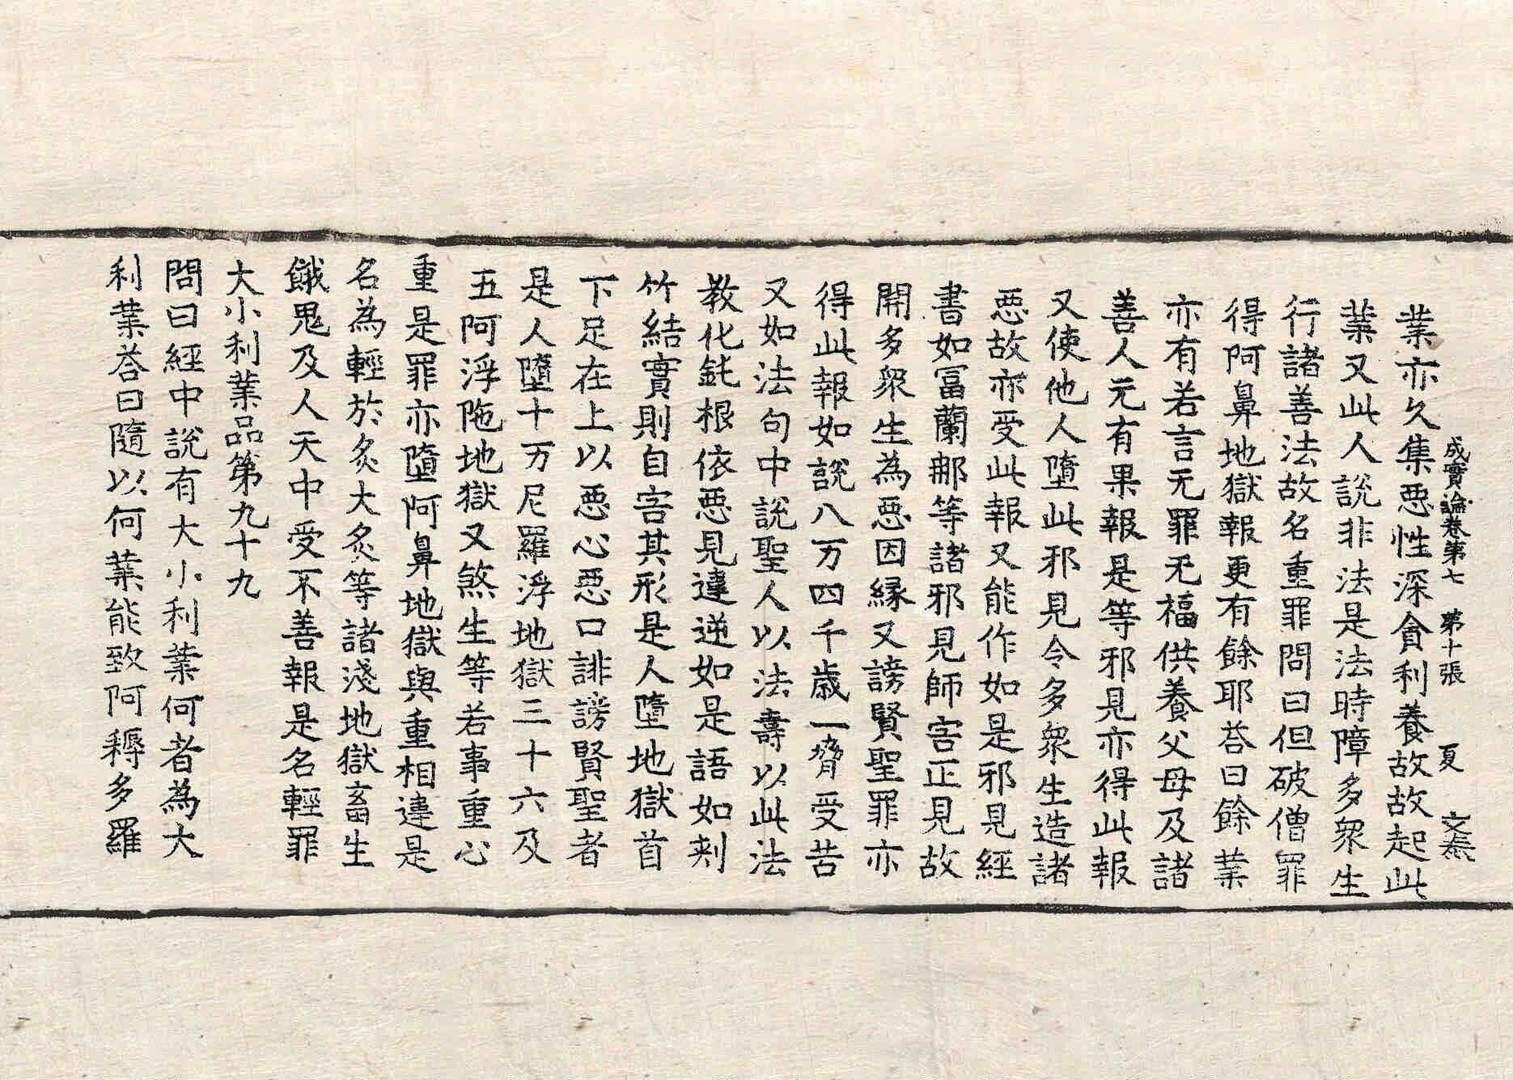 成實論卷第七 第十張 夏
業亦久集惡性深貪利養故故起此
業又此人說非法是法時障多衆生
行諸善法故名重罪問曰但破僧罪
得阿鼻地獄報更有餘耶荅曰餘業
亦有若言无罪无福供養父母及諸
善人无有果報是等邪見亦得此報
又使他人墮此邪見令多衆生造諸
惡故亦受此報又能作如是邪見經
書如冨蘭那等諸邪見師害正見故
開多衆生為惡因縁又謗賢聖罪亦
得此報如說八万四千歲一脅受苦
又如法句中說聖人以法壽以此法
教化鈍根依惡見違逆如是語如刺
竹結實則自害其形是人墮地獄首
下足在上以惡心惡口誹謗賢聖者
是人墮十万尼羅浮地獄三十六及
五阿浮陁地獄又煞生等若事重心
重是罪亦墮阿鼻地獄與重相違是
名為輕於炙大炙等諸淺地獄畜生
餓鬼及人天中受不善報是名輕罪
大小利業品第九十九
問曰經中說有大小利業何者為大
利業荅曰隨以何業能致阿耨多羅